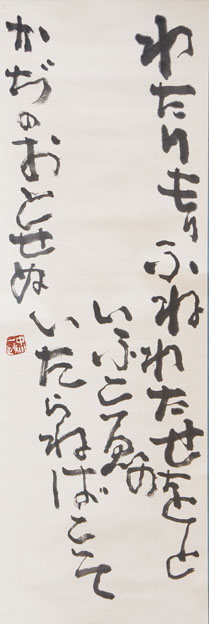 わたりもりふねわたせをと
いふこゑの
いたらねばこそ
かぢのおとせぬ